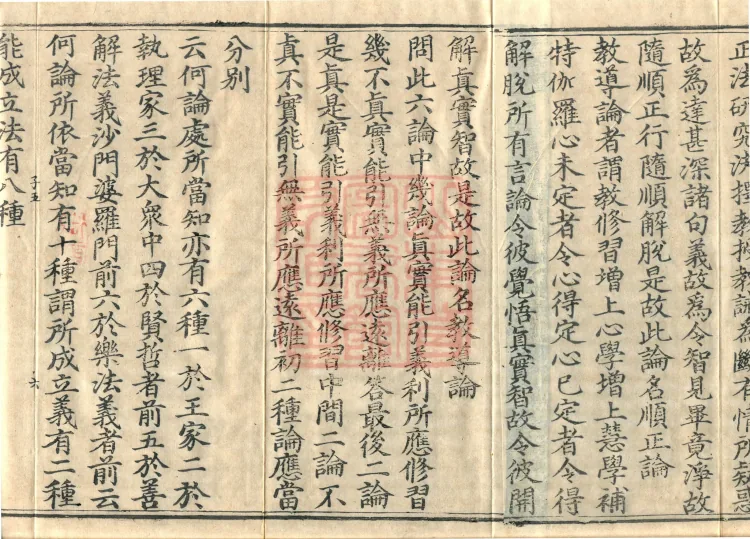 正法研究決擇教授教誡為斷有情所疑惑
故為達甚深諸句義故為令智見畢竟淨故
隨順正行隨順解脫是故此論名順正論
教導論者謂教修習增上心學增上慧學補
特伽羅心未定者令心得定心已定者令得
解脫所有言論令彼覺悟眞實智故令彼開
解眞實智故是故此論名教導論
問此六論中幾論眞實能引義利所應修習
幾不眞實能引無義所應遠離答最後二論
是眞是實能引義利所應修習中間二論不
眞不實能引無義所應遠離初二種論應當
分別
云何論處所當知亦有六種一於王家二於
執理家三於大衆中四於賢哲者前五於善
解法義沙門婆羅門前六於樂法義者前云
何論所依當知有十種謂所成立義有二種
子五
六
能成立法有八種